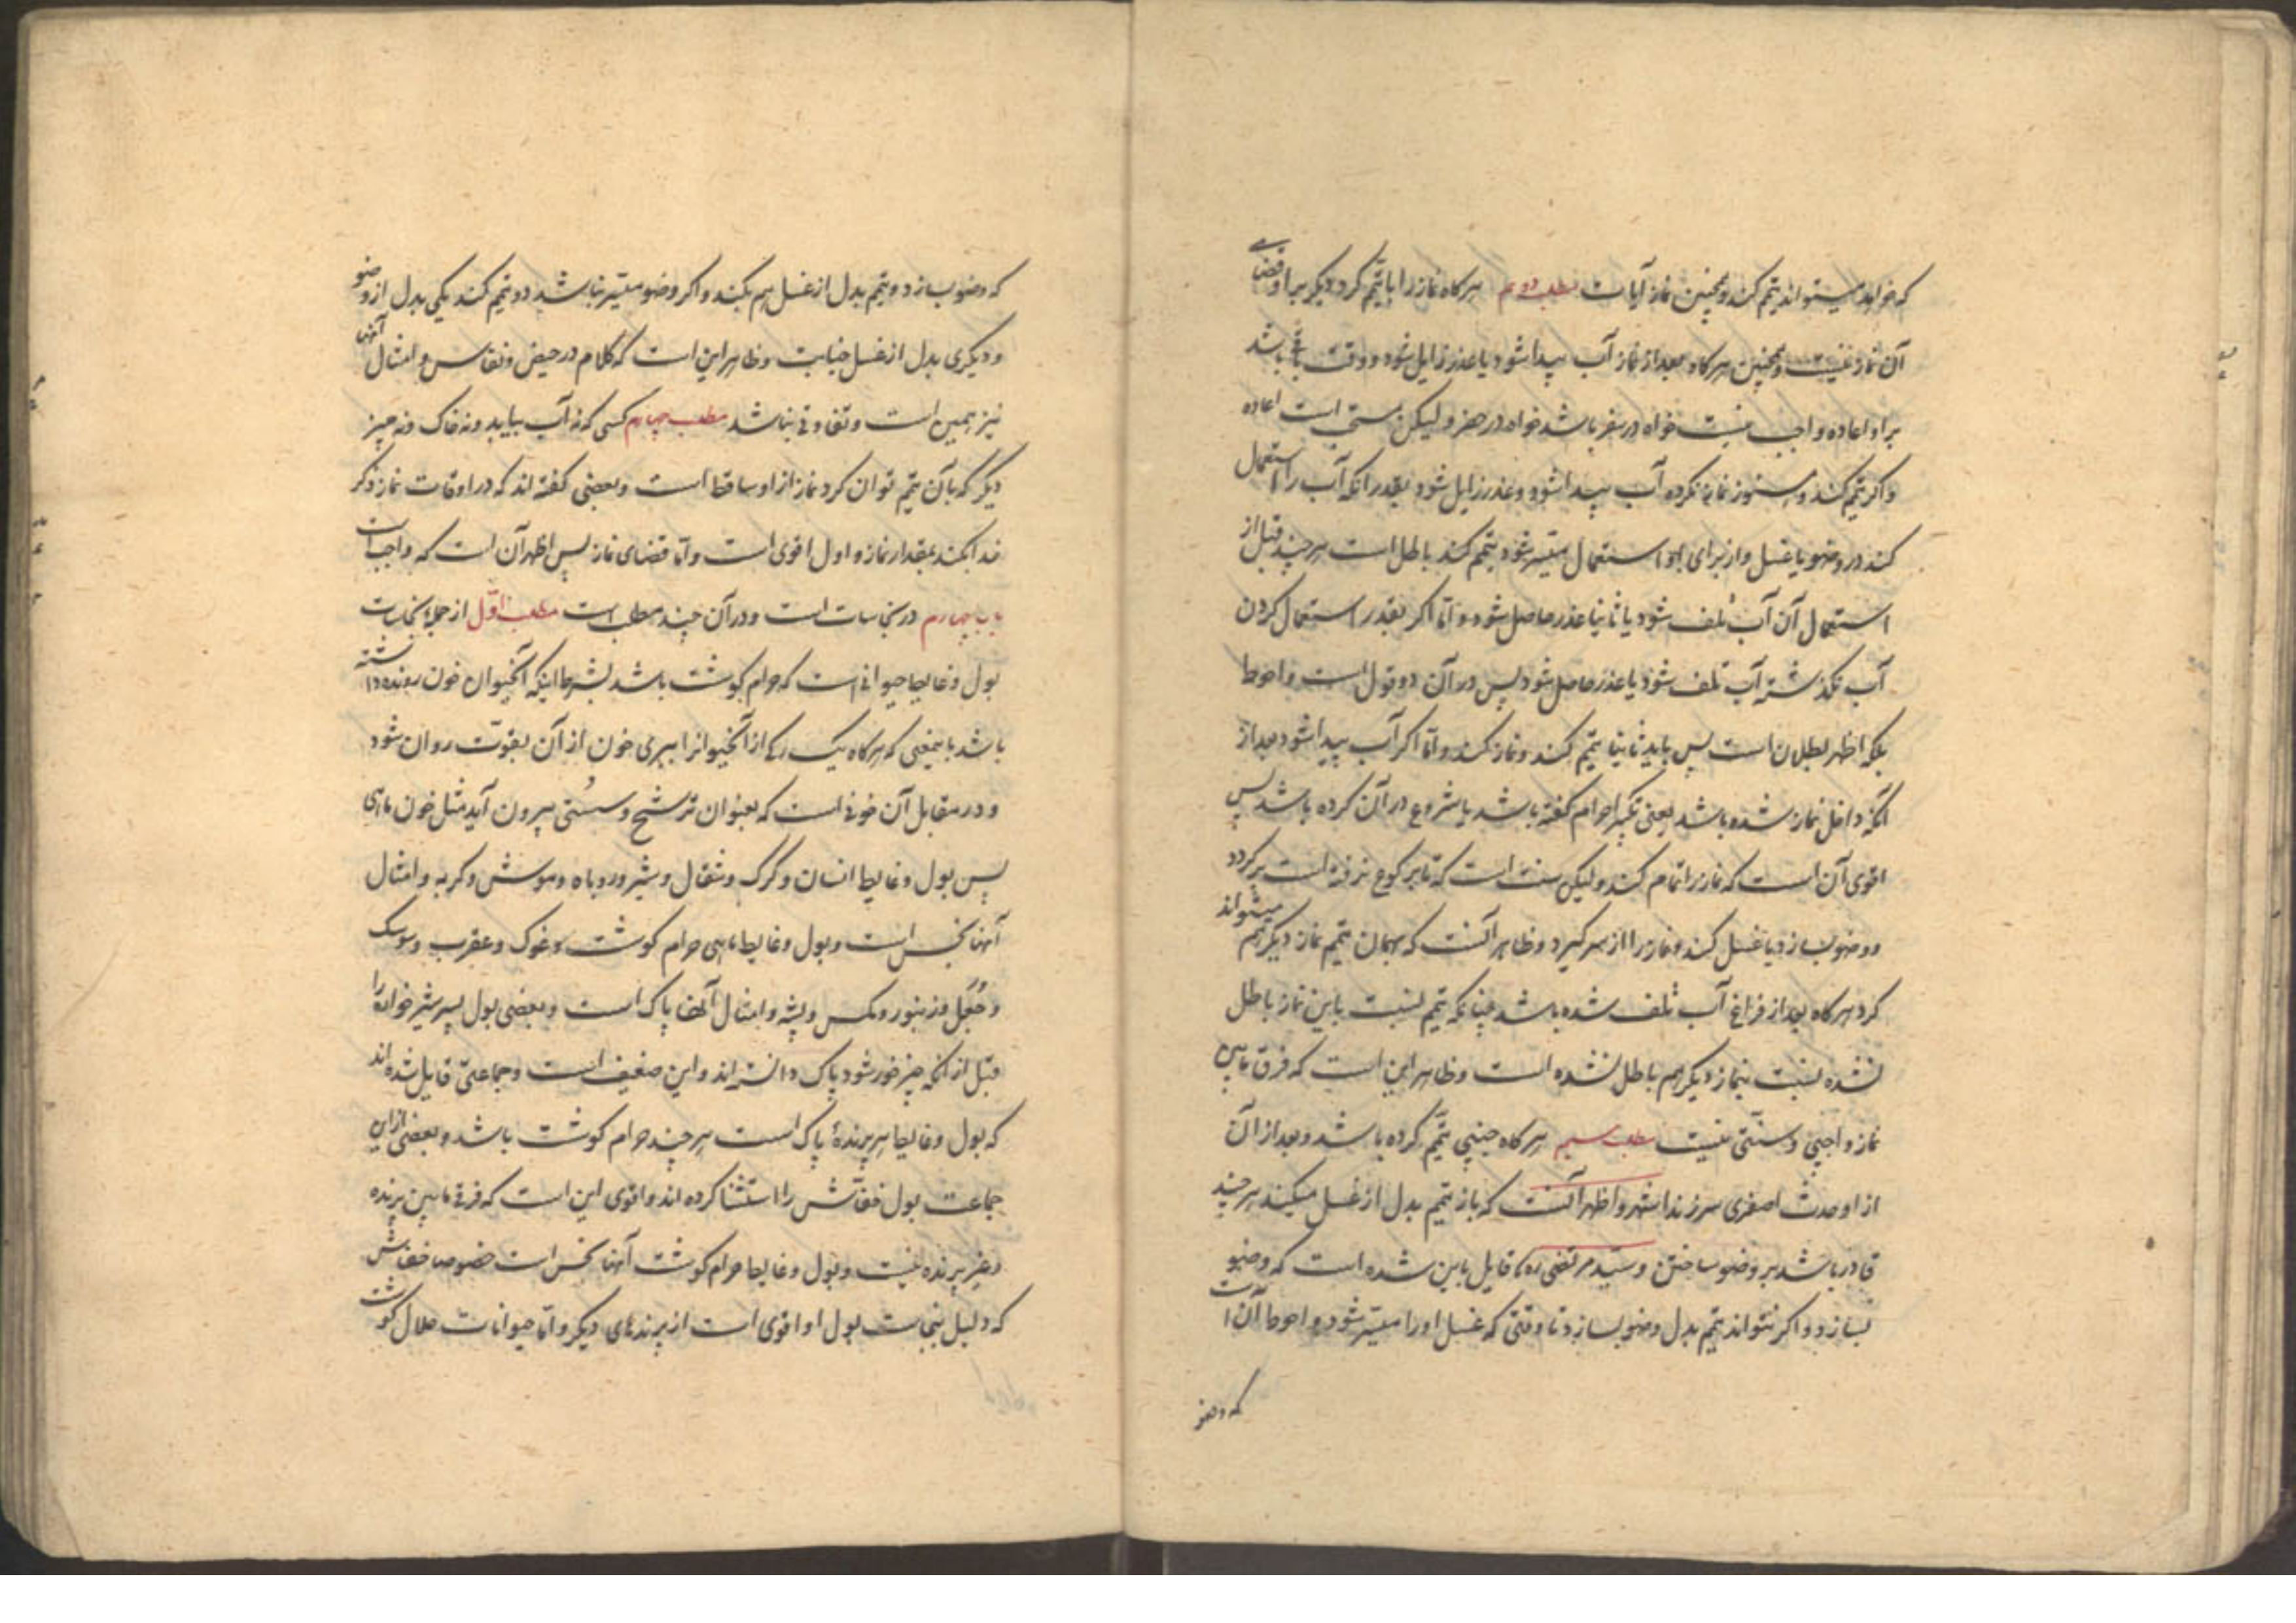 که خواهد میتواند تیمم کند و همچنین نماز آیات مطلب دویم هرگاه نماز را با تیمم کرد دیگر بر او قضای
آن نماز نیست و همچنین هرگاه بعد از نماز آب پیدا شود یا عذر زایل شود و وقت باقی باشد
بر او اعاده واجب نیست خواه در سفر باشد خواه در حضر و لیکن سنتی است اعاده
و اگر تیمم کند و هنوز نماز نکرده آب پیدا شود و عذر زایل شود بقدر آنکه آب را استعمال
کند در وضو یا غسل و از برای او استعمال میسر شود تیمم کند باطل است هر چند قبل از
استعمال آن آب تلف شود یا ثانیا عذر حاصل شود و اما اگر بقدر استعمال کردن
آب نگذشته آب تلف شود یا عذر حاصل شود پس در آن دو قول است و احوط
بلکه اظهر بطلان است پس باید ثانیا تیمم کند و نماز کند و اما اگر آب پیدا شود بعد از
آنکه داخل نماز شده باشد یعنی تکبیر احرام گفته باشد یا شروع در آن کرده باشد پس
اقوی آن است که نماز را تمام کند و لیکن سنت است که تا برکوع نرفته است برگردد
و وضو بسازد یا غسل کند و نماز را از سر گیرد و ظاهر آنست که بهمان تیمم نماز دیگر هم میتواند
کرد هرگاه بعد از فراغ آب تلف شده باشد چنانکه تیمم نسبت باین نماز باطل
نشده نسبت بنماز دیگر هم باطل نشده است و ظاهر این است که فرق مابین
نماز واجبی و سنتی نیست مطلب سیم هرگاه جنبی تیمم کرده باشد و بعد از آن
از او حدث اصغری سر زند اشهر و اظهر آنست که باز تیمم بدل از غسل میکند هر چند
قادر باشد بر وضو ساختن و سید مرتضی ره قایل باین شده است که وضو
بسازد و اگر نتواند تیمم بدل وضو بسازد تا وقتی که غسل او را میسر شود و احوط آن است
که وضو
که وضو بسازد و تیمم بدل از غسل هم بکند و اگر وضو میسر نباشد دو تیمم کند یکی بدل از وضو
و دیگری بدل از غسل جنابت و ظاهر این است که کلام در حیض و نفاس و امثال آنها
نیز همین است و تفاوتی نباشد مطلب چهارم کسی که نه آب بیابد و نه خاک و نه چیز
دیگر که بآن تیمم توان کرد نماز از او ساقط است و بعضی گفته اند که در اوقات نماز ذکر
خدا بکند بمقدار نماز و اول اقوی است و اما قضای نماز پس اظهر آن است که واجب است
باب چهارم در نجاسات است و در آن چند مطلب است مطلب اول از جمله نجاسات
بول و غایط حیوانی است که حرام گوشت باشد بشرط اینکه آنحیوان خون رونده داشته
باشد باینمعنی که هرگاه یک رگی از آنحیوانرا ببری خون از آن بقوت روان شود
و در مقابل آن خونی است که بعنوان ترشح و سستی بیرون آید مثل خون ماهی
پس بول و غایط انسان و گرگ و شغال و شیر و روباه و موش و گربه و امثال
آنها نجس است و بول و غایط ماهی حرام گوشت و غوک و عقرب و سوسک
و جعل و زنبور و مگس و پشه و امثال آنها پاک است و بعضی بول پسر شیرخواره را
قبل از آنکه چیز خور شود پاک دانسته اند و این ضعیف است و جماعتی قایل شده اند
که بول و غایط هر پرنده پاک است هر چند حرام گوشت باشد و بعضی از این
جماعت بول خفاش را استثنا کرده اند و اقوی این است که فرقی مابین پرنده
و غیر پرنده نیست و بول و غایط حرام گوشت آنها نجس است خصوصا خفاش
که دلیل نجاست بول او اقوی است از پرندهای دیگر و اما حیوانات حلال گوشت